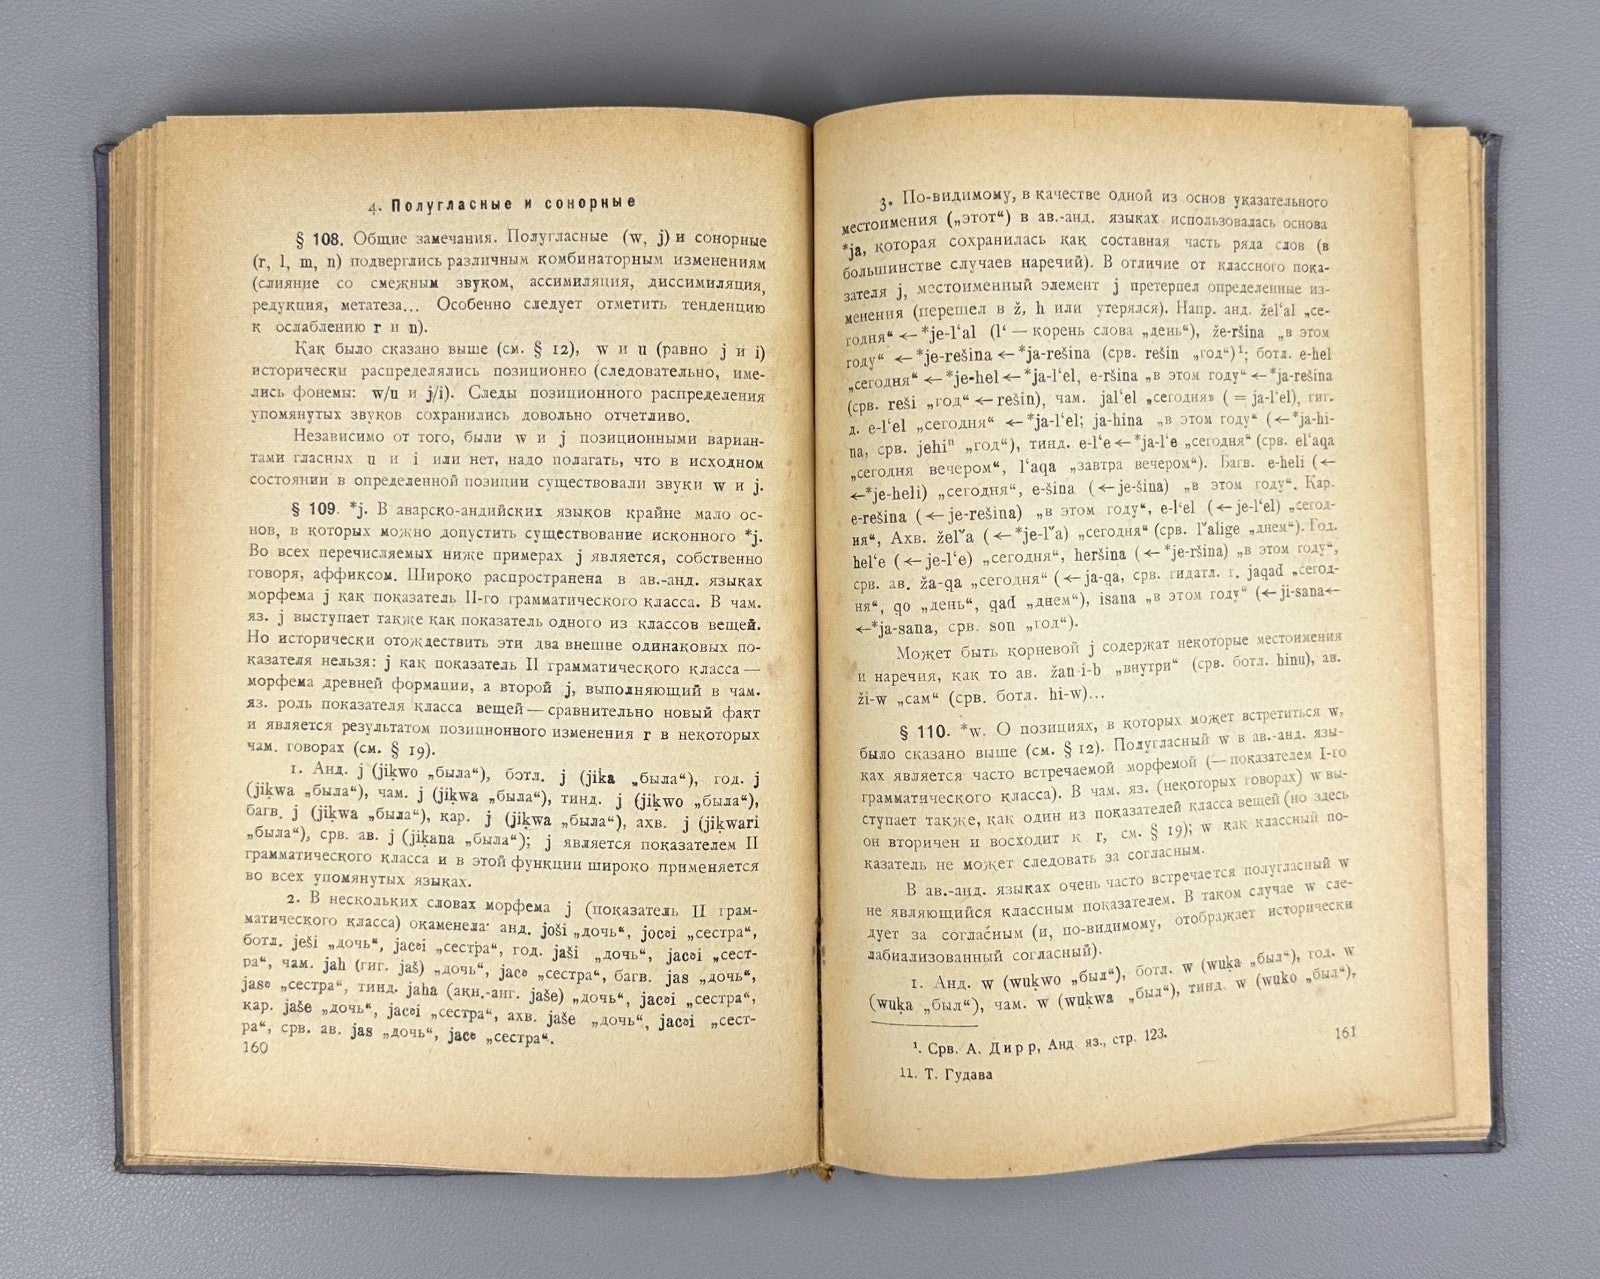 4. Полугласные и сонорные
§ 108. Общие замечания. Полугласные (w, j) и сонорные
(r, l, m, n) подверглись различным комбинаторным изменениям
(слияние со смежным звуком, ассимиляция, диссимиляция,
редукция, метатеза... Особенно следует отметить тенденцию
к ослаблению r и n).
Как было сказано выше (см. § 12), w и u (равно j и i)
исторически распределялись позиционно (следовательно, име-
лись фонемы: w/u и j/i). Следы позиционного распределения
упомянутых звуков сохранились довольно отчетливо.
Независимо от того, были w и j позиционными вариан-
тами гласных u и i или нет, надо полагать, что в исходном
состоянии в определенной позиции существовали звуки w и j.
§ 109. *j. В аварско-андийских языков крайне мало ос-
нов, в которых можно допустить существование исконного *j.
Во всех перечисляемых ниже примерах j является, собственно
говоря, аффиксом. Широко распространена в ав.-анд. языках
морфема j как показатель II-го грамматического класса. В чам.
яз. j выступает также как показатель одного из классов вещей.
Но исторически отождествить эти два внешне одинаковых по-
казателя нельзя: j как показатель II грамматического класса —
морфема древней формации, а второй j, выполняющий в чам.
яз. роль показателя класса вещей — сравнительно новый факт
и является результатом позиционного изменения r в некоторых
чам. говорах (см. § 19).
1. Анд. j (jiḳwo „была“), ботл. j (jiḳa „была“), год. j
(jiḳwa „была“), чам. j (jiḳwa „была“), тинд. j (jiḳwo „была“),
багв. j (jiḳwa „была“), кар. j (jiḳwa „была“), ахв. j (jiḳwari
„была“), срв. ав. j (jiḳana „была“); j является показателем II
грамматического класса и в этой функции широко применяется
во всех упомянутых языках.
2. В нескольких словах морфема j (показатель II грам-
матического класса) окаменела: анд. joši „дочь“, jocəi „сестра“,
ботл. ješi „дочь“, jacəi „сестра“, год. jaši „дочь“, jacəi „сест-
ра“, чам. jah (гиг. jaš) „дочь“, jacə „сестра“, багв. jas „дочь“,
jasə „сестра“, тинд. jaha (акн.-анг. jaše) „дочь“, jacəi „сестра“,
кар. jaše „дочь“, jacəi „сестра“, ахв. jaše „дочь“, jacəi „сест-
ра“, срв. ав. jas „дочь“, jacə „сестра“.
160
3. По-видимому, в качестве одной из основ указательного
местоимения („этот“) в ав.-анд. языках использовалась основа
*ja, которая сохранилась как составная часть ряда слов (в
большинстве случаев наречий). В отличие от классного пока-
зателя j, местоименный элемент j претерпел определенные из-
менения (перешел в ž, h или утерялся). Напр. анд. žel‘al „се-
годня“ ← *je-l‘al (l‘ — корень слова „день“), že-ršina „в этом
году“ ← *je-rešina ← *ja-rešina (срв. rešin „год“)¹; ботл. e-hel
„сегодня“ ← *je-hel ← *ja-l‘el, e-ršina „в этом году“ ← *ja-rešina
(срв. reši „год“ ← rešin), чам. jal‘el „сегодня» ( = ja-l‘el), гиг.
д. e-l‘el „сегодня“ ← *ja-l‘el; ja-hina „в этом году“ (←*ja-hi-
na, срв. jehiⁿ „год“), тинд. e-l‘e ← *ja-l‘e „сегодня“ (срв. el‘aqa
„сегодня вечером“, l‘aqa „завтра вечером“). Багв. e-heli (←
←*je-heli) „сегодня“, e-šina (←je-šina) „в этом году“. Кар.
e-rešina (←je-rešina) „в этом году“, e-l‘el (←je-l‘el) „сегод-
ня“, Ахв. želˇa (←*je-lˇa) „сегодня“ (срв. lˇalige „днем“). Год.
hel‘e (←je-l‘e) „сегодня“, heršina (←*je-ršina) „в этом году“,
срв. ав. ža-qa „сегодня“ (←ja-qa, срв. гидатл. г. jaqad „сегод-
ня“, qo „день“, qad „днем“), isana „в этом году“ (←ji-sana←
←*ja-sana, срв. son „год“).
Может быть корневой j содержат некоторые местоимения
и наречия, как то ав. žan-i-b „внутри“ (срв. ботл. hinu), ав.
ži-w „сам“ (срв. ботл. hi-w)...
§ 110. *w. О позициях, в которых может встретиться w,
было сказано выше (см. § 12). Полугласный w в ав.-анд. язы-
ках является часто встречаемой морфемой (—показателем I-го
грамматического класса). В чам. яз. (некоторых говорах) w вы-
ступает также, как один из показателей класса вещей (но здесь
он вторичен и восходит к r, см. § 19); w как классный по-
казатель не может следовать за согласным.
В ав.-анд. языках очень часто встречается полугласный w
не являющийся классным показателем. В таком случае w сле-
дует за согласным (и, по-видимому, отображает исторически
лабиализованный согласный).
1. Анд. w (wuḳwo „был“), ботл. w (wuḳa „был“), год. w
(wuḳa „был“), чам. w (wuḳwa „был“), тинд. w (wuḳo „был“),
¹. Срв. А. Дирр, Анд яз., стр. 123.
11. Т. Гудава
161